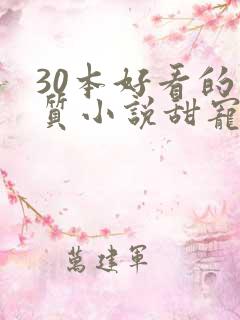 30本好看的
質小說甜寵
萬建軍